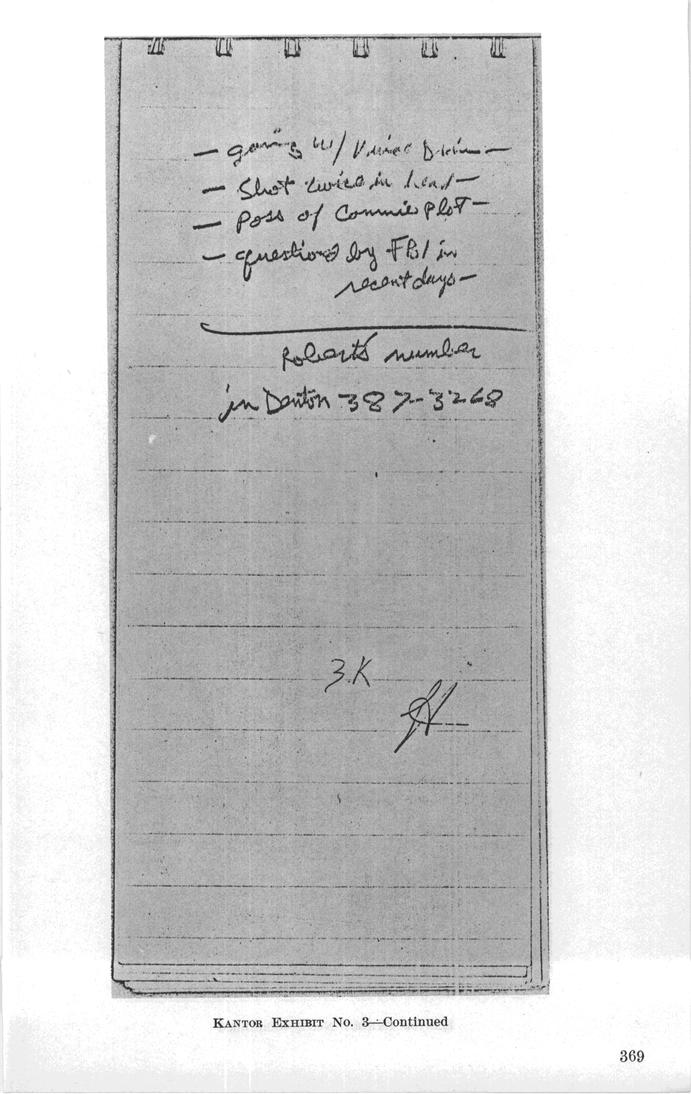 — going w/ Vince Drain —
— Shot twice in head —
— Poss of Commie Plot —
— questioned by FBI in
recent days —
Roberts' number
in Denton 387-3268
3.K
KANTOR EXHIBIT No. 3—Continued
369